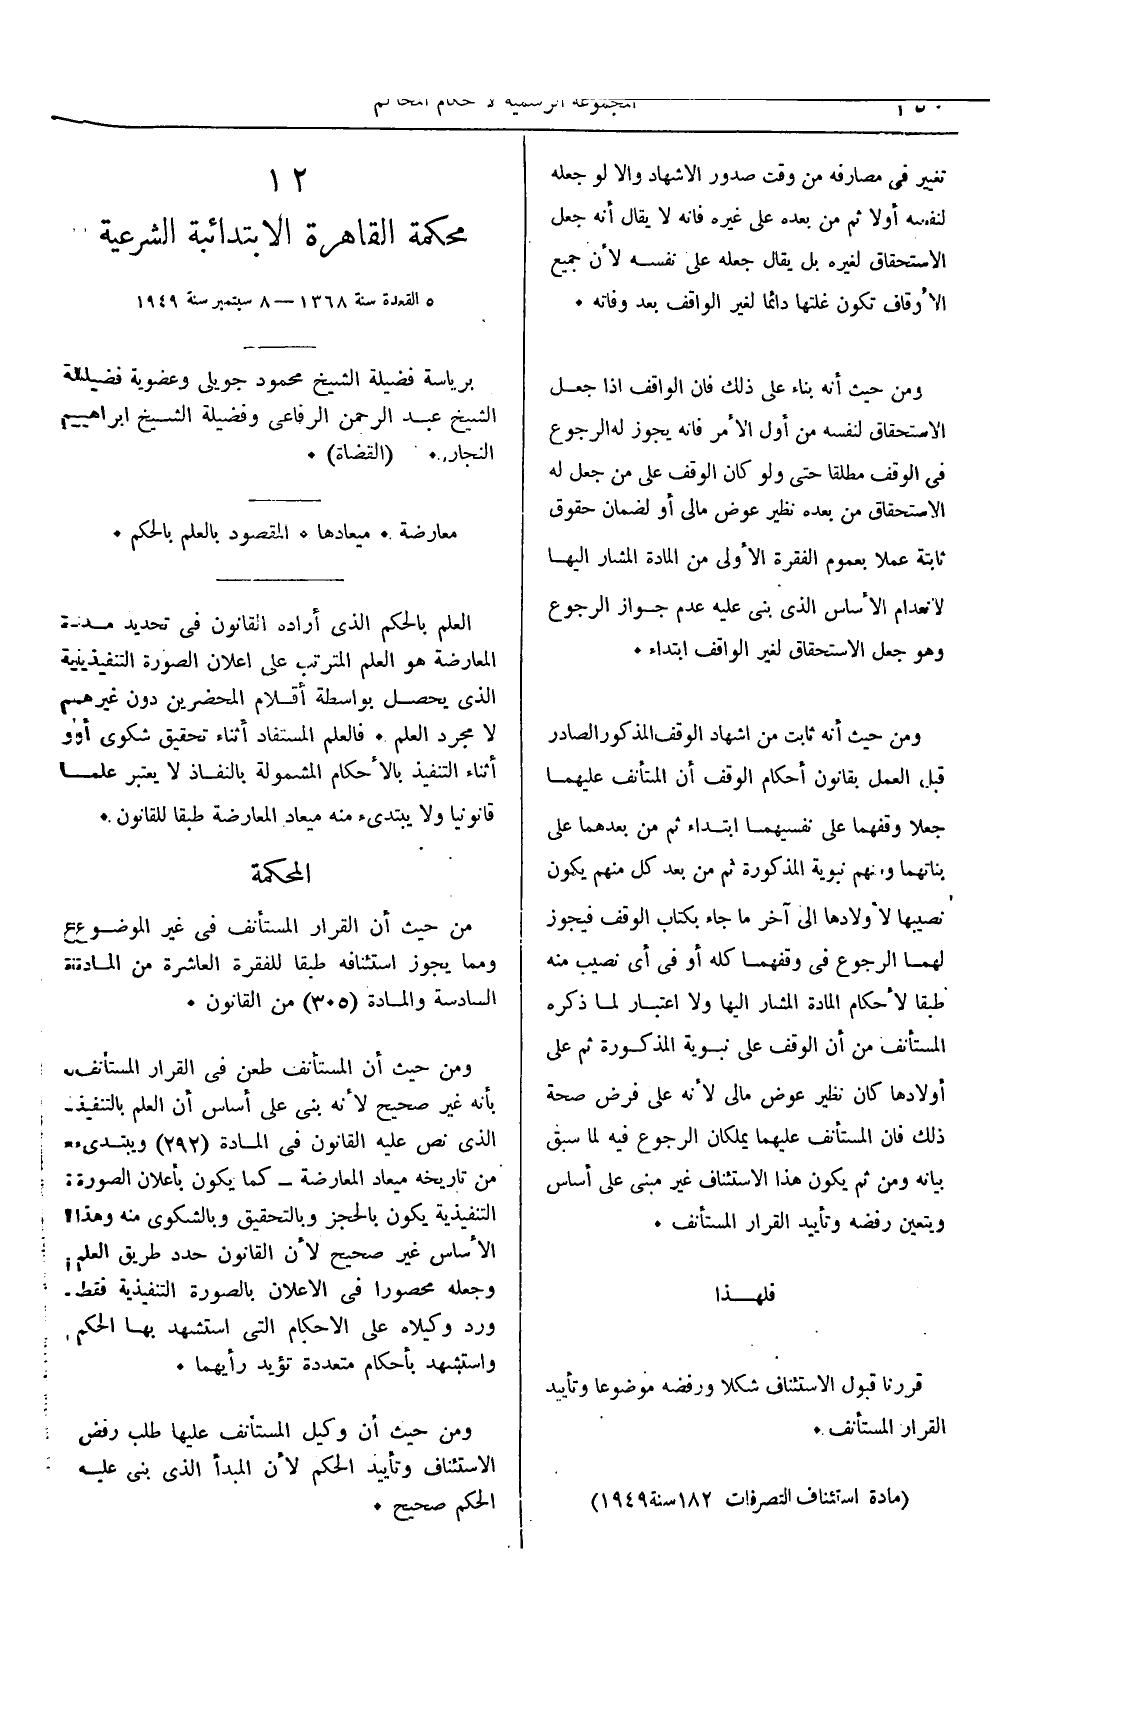 المجموعة الرسمية لأحكام المحاكم
تغيير فى مصارفه من وقت صدور الاشهاد والا لو جعله
لنفسه أولا ثم من بعده على غيره فانه لا يقال أنه جعل
الاستحقاق لغيره بل يقال جعله على نفسه لأن جميع
الأوقاف تكون غلتها دائما لغير الواقف بعد وفاته ٠
ومن حيث أنه بناء على ذلك فان الواقف اذا جعل
الاستحقاق لنفسه من أول الأمر فانه يجوز له الرجوع
فى الوقف مطلقا حتى ولو كان الوقف على من جعل له
الاستحقاق من بعده نظير عوض مالى أو لضمان حقوق
ثابتة عملا بعموم الفقرة الأولى من المادة المشار اليها
لانعدام الأساس الذى بنى عليه عدم جواز الرجوع
وهو جعل الاستحقاق لغير الواقف ابتداء ٠
ومن حيث أنه ثابت من اشهاد الوقف المذكور الصادر
قبل العمل بقانون أحكام الوقف أن المتأنف عليهما
جعلا وقفهما على نفسيهما ابتداء ثم من بعدهما على
بناتهما ومنهم نبوية المذكورة ثم من بعد كل منهم يكون
نصيبها لأولادها الى آخر ما جاء بكتاب الوقف فيجوز
لهما الرجوع فى وقفهما كله أو فى أى نصيب منه
طبقا لأحكام المادة المشار اليها ولا اعتبار لما ذكره
المستأنف من أن الوقف على نبوية المذكورة ثم على
أولادها كان نظير عوض مالى لأنه على فرض صحة
ذلك فان المستأنف عليهما يملكان الرجوع فيه لما سبق
بيانه ومن ثم يكون هذا الاستئناف غير مبنى على أساس
ويتعين رفضه وتأييد القرار المستأنف ٠
فلهذا
قررنا قبول الاستئناف شكلا ورفضه موضوعا وتأييد
القرار المستأنف ٠
(مادة استئناف التصرفات ١٨٢ سنة ١٩٤٩)
١٢
محكمة القاهرة الابتدائية الشرعية
٥ القعدة سنة ١٣٦٨ — ٨ سبتمبر سنة ١٩٤٩
برياسة فضيلة الشيخ محمود جويلى وعضوية فضيلة
الشيخ عبد الرحمن الرفاعى وفضيلة الشيخ ابراهيم
النجار ٠ (القضاة) ٠
معارضة ٠ ميعادها ٠ المقصود بالعلم بالحكم ٠
العلم بالحكم الذى أراده القانون فى تحديد مدة
المعارضة هو العلم المترتب على اعلان الصورة التنفيذية
الذى يحصل بواسطة أقلام المحضرين دون غيرهم
لا مجرد العلم ٠ فالعلم المستفاد أثناء تحقيق شكوى أو
أثناء التنفيذ بالأحكام المشمولة بالنفاذ لا يعتبر علما
قانونيا ولا يبتدىء منه ميعاد المعارضة طبقا للقانون ٠
المحكمة
من حيث أن القرار المستأنف فى غير الموضوع
ومما يجوز استئنافه طبقا للفقرة العاشرة من المادة
السادسة والمادة (٣٠٥) من القانون ٠
ومن حيث أن المستأنف طعن فى القرار المستأنف
بأنه غير صحيح لأنه بنى على أساس أن العلم بالتنفيذ
الذى نص عليه القانون فى المادة (٢٩٢) ويبتدىء
من تاريخه ميعاد المعارضة ـ كما يكون بأعلان الصورة
التنفيذية يكون بالحجز وبالتحقيق وبالشكوى منه وهذا
الأساس غير صحيح لأن القانون حدد طريق العلم
وجعله محصورا فى الاعلان بالصورة التنفيذية فقط
ورد وكيلاه على الاحكام التى استشهد بها الحكم
واستشهد بأحكام متعددة تؤيد رأيهما ٠
ومن حيث أن وكيل المستأنف عليها طلب رفض
الاستئناف وتأييد الحكم لأن المبدأ الذى بنى عليه
الحكم صحيح ٠